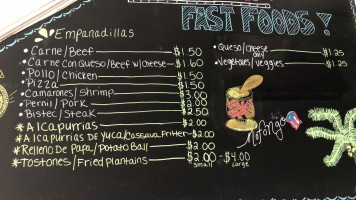 FAST FOODS!
Empanadillas
• Carne/Beef $1.50
• Carne Con Queso/Beef w/cheese $1.60
• Pollo/Chicken $1.50
• Pizza $1.50
• Camarones/Shrimp $3.00
• Pernil/Pork $2.00
• Bistec/Steak $2.50
* Alcapurrias $2.00
* Alcapurrias De Yuca/Cassava Fritter $2.00
* Relleno De Papa/Potato Ball $2.00
* Tostones/Fried Plantains $2.00 - $4.00
small large
• Queso/Cheese only $1.25
• Vegetales/Veggies $1.25
Mofongo